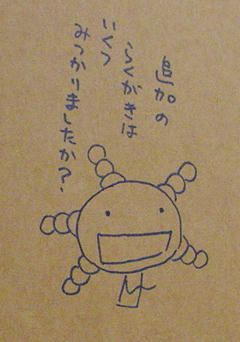 追加の
らくがきは
いくつ
みつかりましたか?